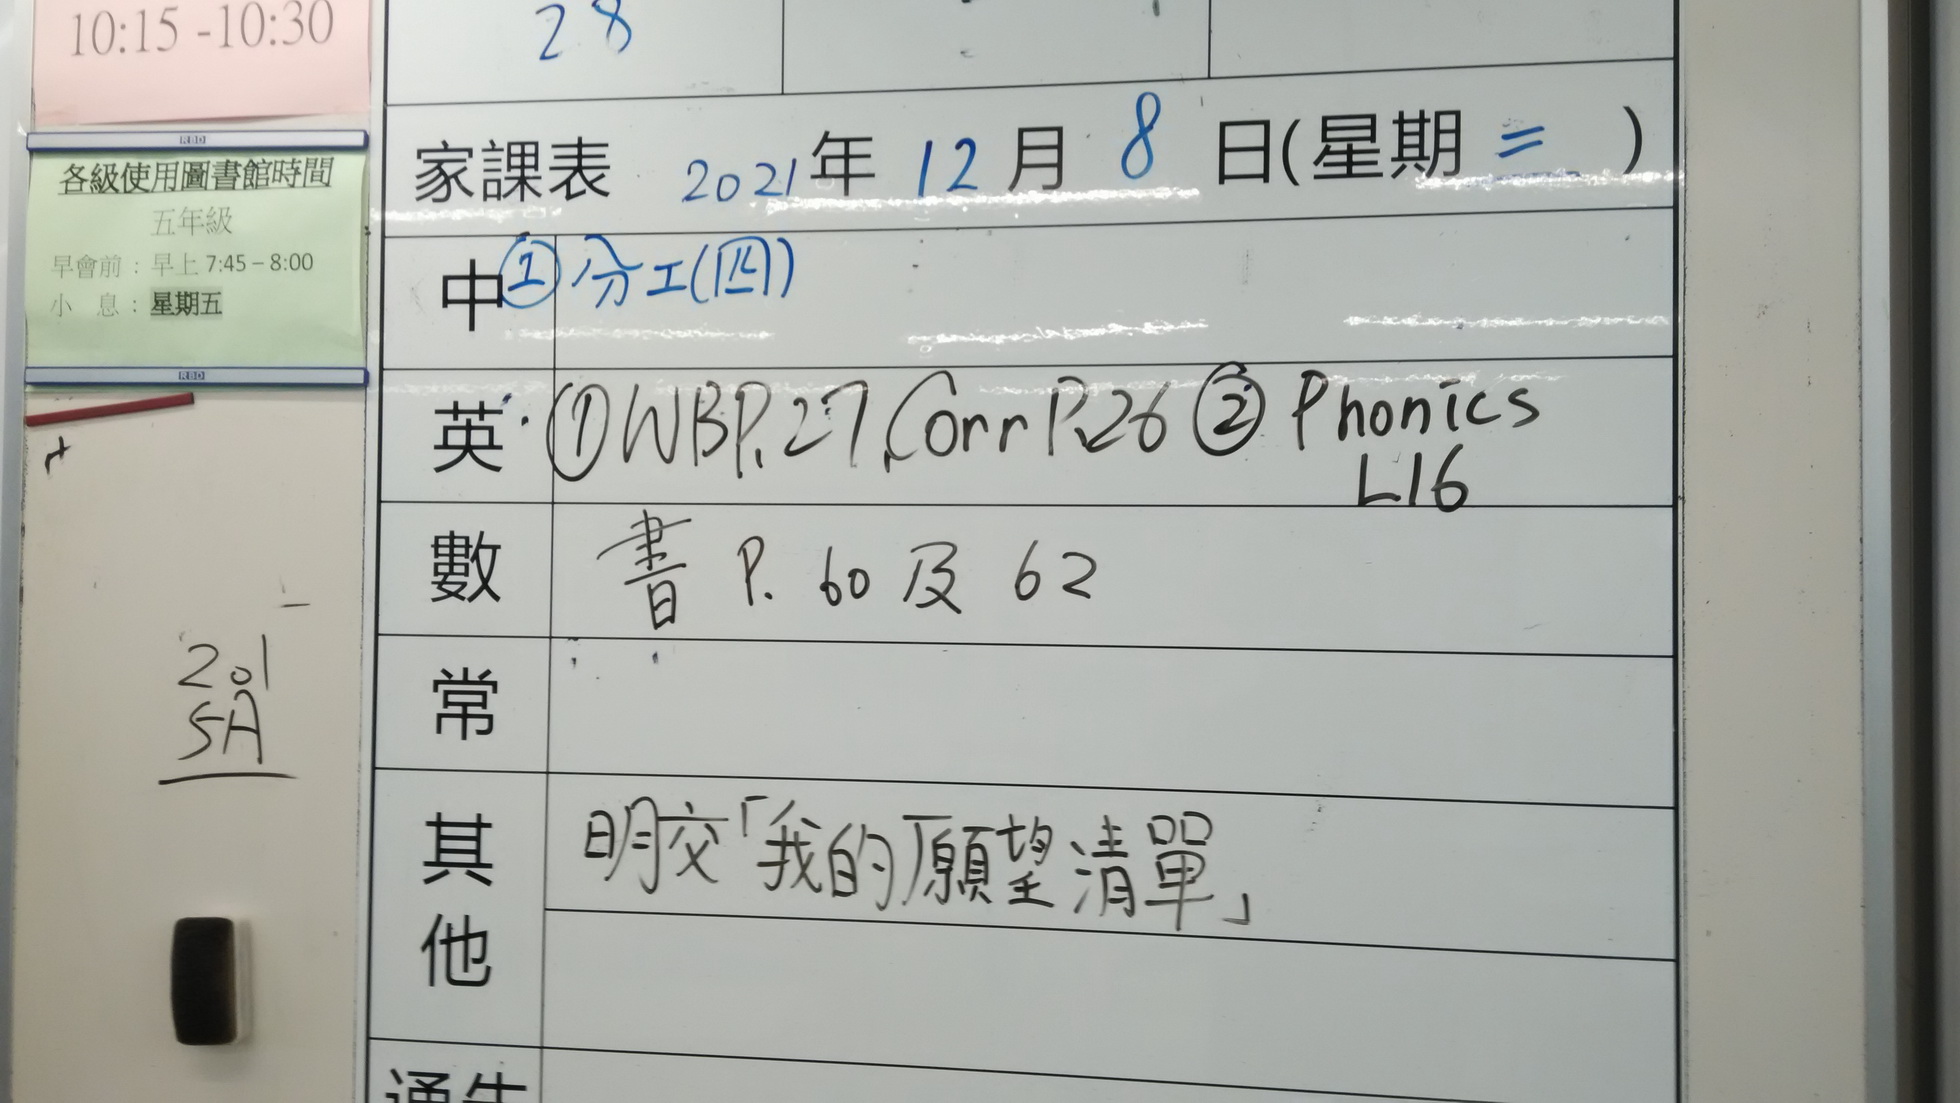 10:15 -10:30
28
RBD
各級使用圖書館時間
五年級
早會前：早上 7:45 – 8:00
小 息：星期五
RBD
家課表 2021年 12月 8日(星期 二 )
中 ① 分工(四)
英 ① WB P.27, Corr P.26 ② Phonics
L16
數 書 P. 60 及 62
常
其他 明交「我的願望清單」
通告
201
5A